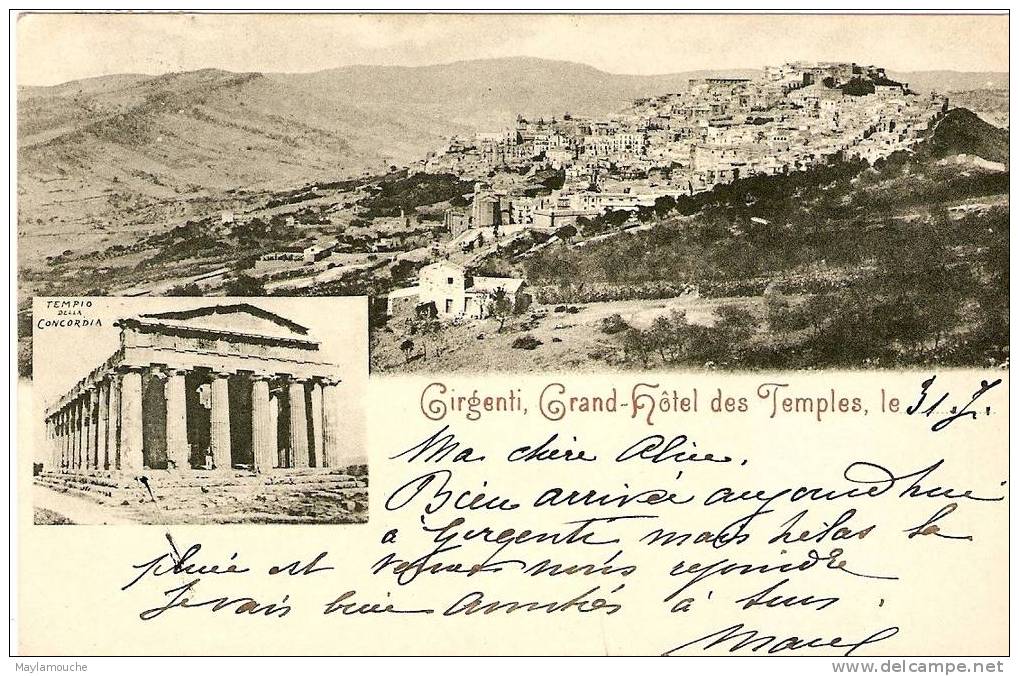 TEMPIO
DELLA
CONCORDIA
Girgenti, Grand-Hôtel des Temples, le 31. J.
Ma chère Aline,
Bien arrivée aujourd'hui
à Girgenti mais hélas la
pluie est venue nous rejoindre
Je vais bien à tous.
Maylamouche
www.delcampe.net